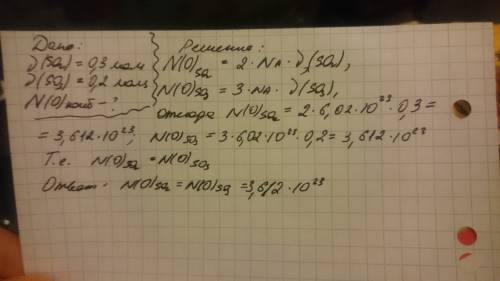 Дано:
ν(SO₂) = 0,3 моль
ν(SO₃) = 0,2 моль
N(O)наиб - ?
Решение:
N(O)SO₂ = 2 · NA · ν(SO₂),
N(O)SO₃ = 3 · NA · ν(SO₃),
откуда N(O)SO₂ = 2 · 6,02 · 10²³ · 0,3 =
= 3,612 · 10²³; N(O)SO₃ = 3 · 6,02 · 10²³ · 0,2 = 3,612 · 10²³
Т.е. N(O)SO₂ = N(O)SO₃
Ответ: N(O)SO₂ = N(O)SO₃ = 3,612 · 10²³